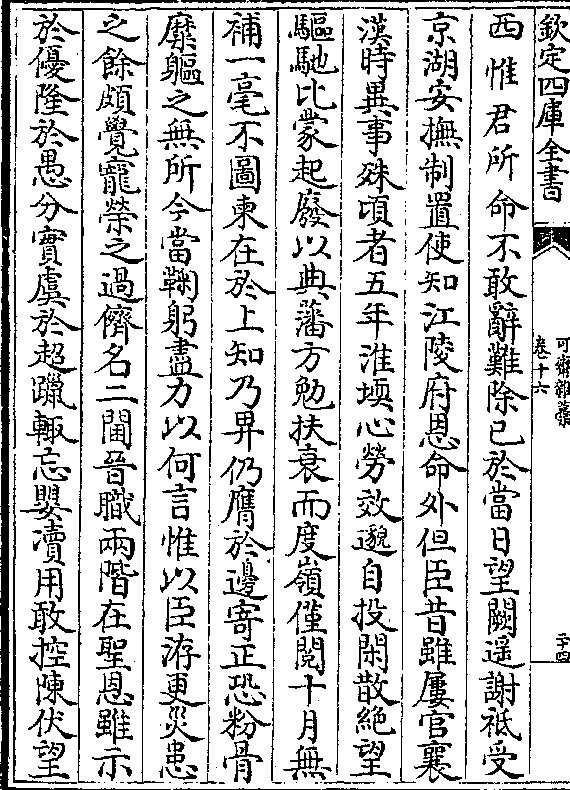 欽定四庫全書
可齋雜藁
卷十六
二十四
西惟君所命不敢辭難除已於當日望闕遥謝祗受
京湖安撫制置使知江陵府恩命外但臣昔雖屢官襄
漢時異事殊頃者五年淮壖心勞效邈自投閑散絶望
驅馳比蒙起廢以典藩方勉扶衰而度嶺僅閲十月無
補一毫不圖東在於上知乃畀仍膺於邊寄正恐粉骨
糜軀之無所今當鞠躬盡力以何言惟以臣洊更災患
之餘頗覺寵榮之過儕名二閫晉職兩階在聖恩雖示
於優隆於愚分實虞於超躐輙忘嬰瀆用敢控陳伏望